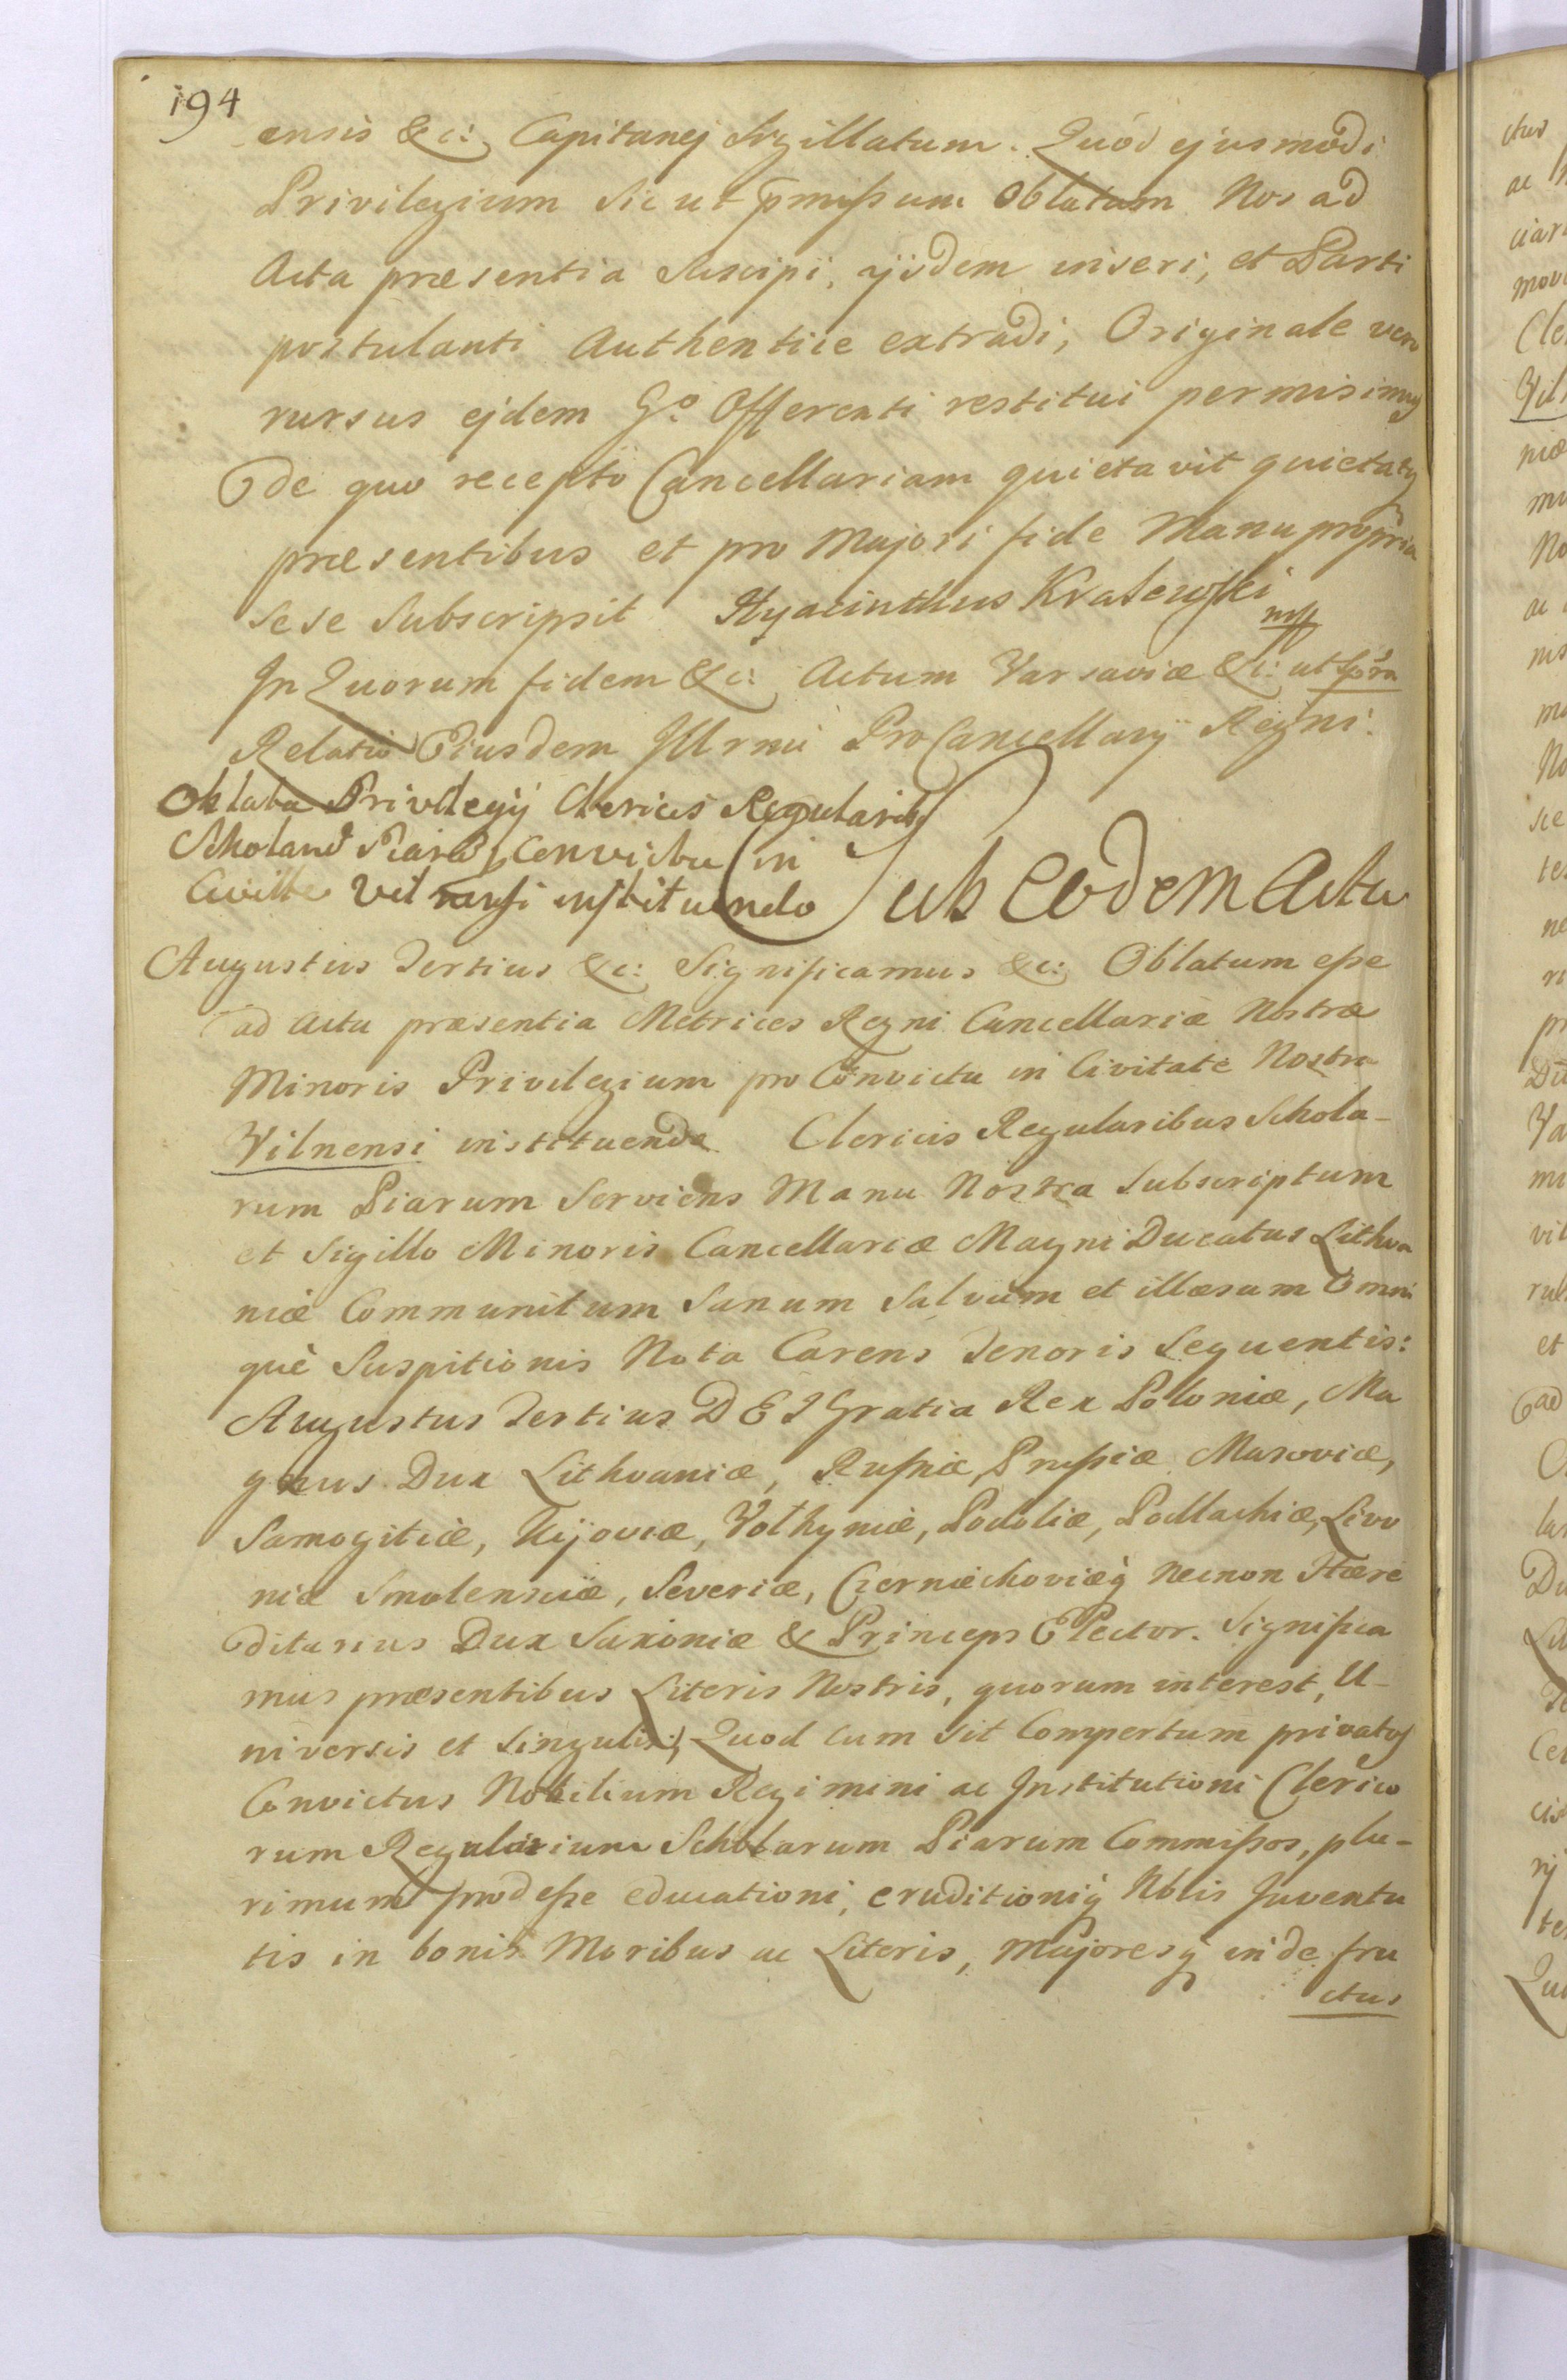 194
ensis &c: Capitanej Sigillatum. Quod ejusmodi
Privilegium Sicut p̄missum Oblatum Nos ad
Acta præsentia Suscipi, ijsdem inseri, et Parti
postulanti Authentice extradi, Originale vero
rursus ejdem Gº Offerenti restitui permisimus
de quo recepto Cancellariam quietavit quietatq
præsentibus et pro Majori fide Manu propria
sese Subscripsit Hyacinthus Kvalewski
mp
In Quorum fidem &c: Actum Varsaviæ &c: ut supra
Relatio Eiusdem Illrmi ProCancellarij Regni.
Oblata Privilegij Clericis Regularib9
Scholarū Piarū, Convictu in
Civitte Vilnensi instituendo
Sub Eodem Actu
Augustus Tertius &c: Significamus &c: Oblatum esse
ad Acta præsentia Metrices Regni Cancellariæ Nostræ
Minoris Privilegium pro Convictu in Civitate Nostra
Vilnensi instituendo Clericis Regularibus Schola-
rum Piarum Serviens Manu Nostra Subscriptum
et Sigillo Minoris Cancellariæ Magni Ducatus Lithva
niæ Communitum Sanum Salvum et illæsum Omni
què Suspitionis Nota Carens Tenoris Sequentis:
Augustus Tertius DEI Gratia Rex Poloniæ, Ma
gnus Dux Lithvaniæ, Russiæ, Prussiæ Masoviæ,
Samogitiæ, Kijoviæ, Volhyniæ, Podoliæ, Podlachiæ, Livo
niæ Smolensciæ, Severiæ, Czerniechoviæq Necnon Hære
ditarius Dux Saxoniæ & Princeps Elector. Significa
mus præsentibus Literis Nostris, quorum interest, U-
niversis et Singulis; Quod cum sit Compertum privatos
Convictus Nobilium Regimini ac Institutioni Clerico
rum Regularium Scholarum Piarum Commissos, plu-
rimum prodesse educationi, eruditioniq Nblis Juventu
tis in bonis Moribus ac Literis, Majoresq inde fru
ctus